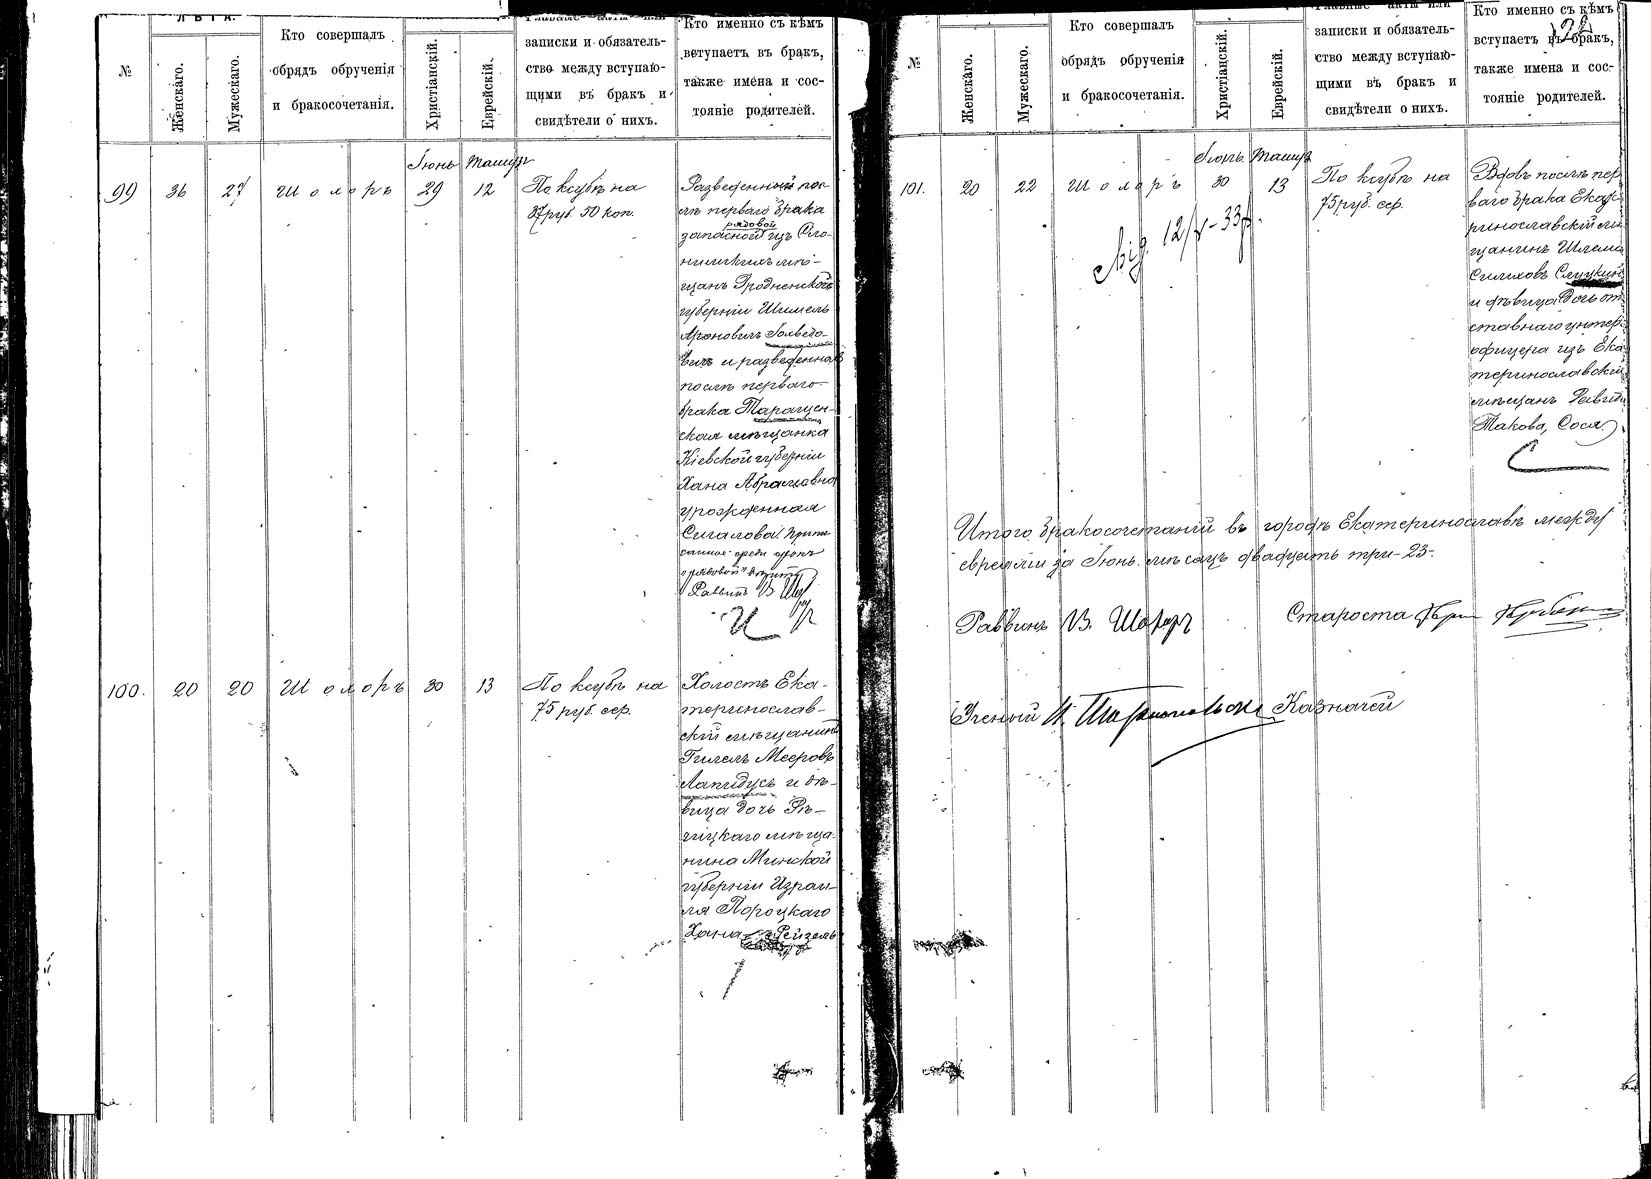 ЛѢТА.
№
Женскаго.
Мужескаго.
Кто совершалъ
обрядъ обрученія
и бракосочетанія.
Христіанскій.
Еврейскій.
Главные акты или
записки и обязатель-
ство между вступаю-
щими въ бракъ и
свидѣтели о нихъ.
Кто именно съ кѣмъ
вступаетъ въ бракъ,
также имена и сос-
тояніе родителей.
Іюнь Тамузъ
99 36 27 Шолоръ 29 12 По ксубѣ на
37 руб. 50 коп.
Разведенный пос-
лѣ перваго брака
рядовой
запасной изъ Сло-
нимскихъ мѣ-
щанъ Гродненской
губерніи Шмель
Ароновичъ
вичъ и разведенная
послѣ перваго
брака Таращен-
ская мѣщанка
Кіевской губерніи
Хана Абрамовна
урожденная
Сигалова.
Раввинъ В. Шо
100. 20 20 Шолоръ 30 13 По ксубѣ на
75 руб. сер.
Холостъ Ека-
теринослав-
скій мѣщанинъ
Гилель Мееровъ
Лапидусъ и дѣ-
вица дочь Рѣ-
чицкаго мѣща-
нина Минской
губерніи Изра-
ля Пороцкаго
Хана Рейзель
№
Женскаго.
Мужескаго.
Кто совершалъ
обрядъ обрученія
и бракосочетанія.
Христіанскій.
Еврейскій.
Главные акты или
записки и обязатель-
ство между вступаю-
щими въ бракъ и
свидѣтели о нихъ.
Кто именно съ кѣмъ
вступаетъ въ бракъ,
также имена и сос-
тояніе родителей.
Іюнь Тамузъ
101. 20 22 Шолоръ 30 13 По ксубѣ на
75 руб. сер.
12/V-33
Вдовъ послѣ пер
ваго брака Екате
ринославскій мѣ
щанинъ Шлема
Слуцкинъ
и дѣвица дочь от
ставнаго унтер
офицера изъ Ека
теринославски
мѣщанъ
Такова, Сося
Итого бракосочетаній въ городѣ Екатеринославѣ между
евреями за Іюнь мѣсяцъ двадцать три-23-.
Раввинъ В. Шолоръ Староста
Ученый Казначей